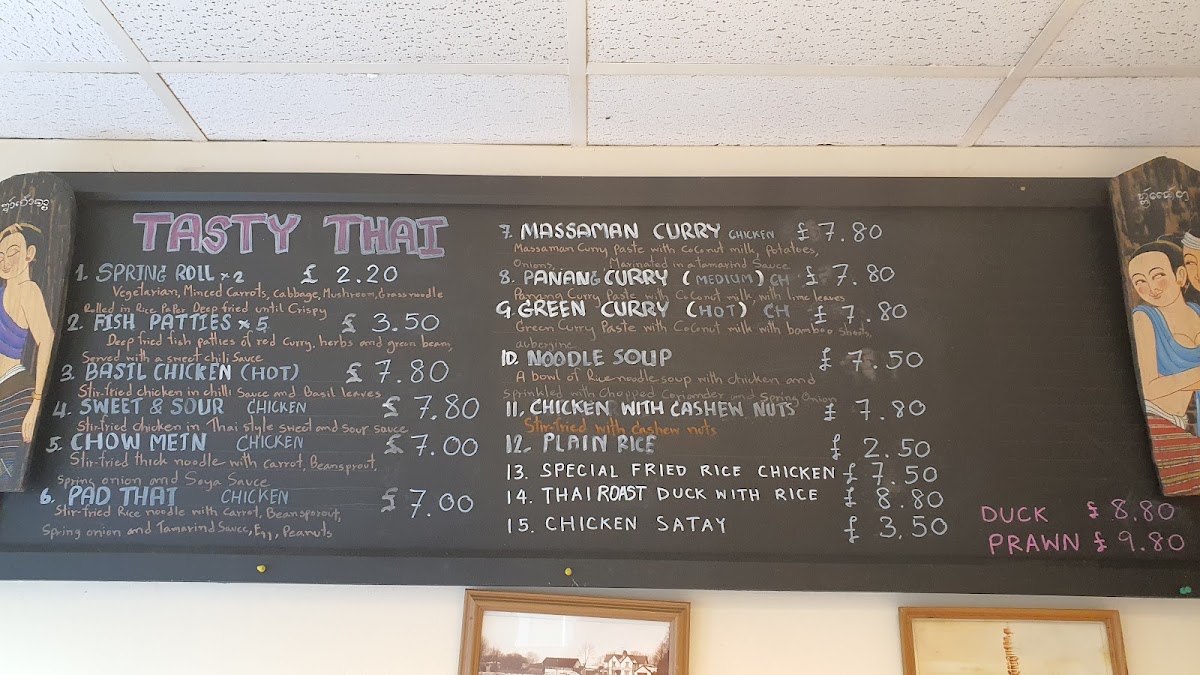 TASTY THAI
1. SPRING ROLL x 2 £ 2.20
Vegetarian, Minced Carrots, Cabbage, Mushroom, Grass noodle
Rolled in Rice Paper Deep fried until Crispy
2. FISH PATTIES x 5 £ 3.50
Deep fried fish patties of red Curry, herbs and green bean,
Served with a sweet chili Sauce
3. BASIL CHICKEN (HOT) £ 7.80
Stir-fried chicken in chilli Sauce and Basil leaves
4. SWEET & SOUR CHICKEN £ 7.80
Stir-fried chicken in Thai style sweet and sour sauce
5. CHOW MEIN CHICKEN £ 7.00
Stir-fried thick noodle with carrot, Beansprout,
spring onion and Soya Sauce
6. PAD THAI CHICKEN £ 7.00
Stir-fried Rice noodle with Carrot, Beansprout,
Spring onion and Tamarind Sauce, Egg, Peanuts
7. MASSAMAN CURRY CHICKEN £ 7.80
Massaman Curry Paste with Coconut milk, Potatoes,
Onions, Marinated in a tamarind Sauce
8. PANANG CURRY (MEDIUM) CH £ 7.80
Panang Curry Paste with Coconut milk, with lime leaves
9. GREEN CURRY (HOT) CH £ 7.80
Green Curry Paste with Coconut milk with bamboo shoots,
aubergine
10. NOODLE SOUP £ 7.50
A bowl of Rice noodle soup with chicken and
sprinkled with Chopped Coriander and Spring Onion
11. CHICKEN WITH CASHEW NUTS £ 7.80
Stir-fried with cashew nuts
12. PLAIN RICE £ 2.50
13. SPECIAL FRIED RICE CHICKEN £ 7.50
14. THAI ROAST DUCK WITH RICE £ 8.80
15. CHICKEN SATAY £ 3.50
DUCK £ 8.80
PRAWN £ 9.80